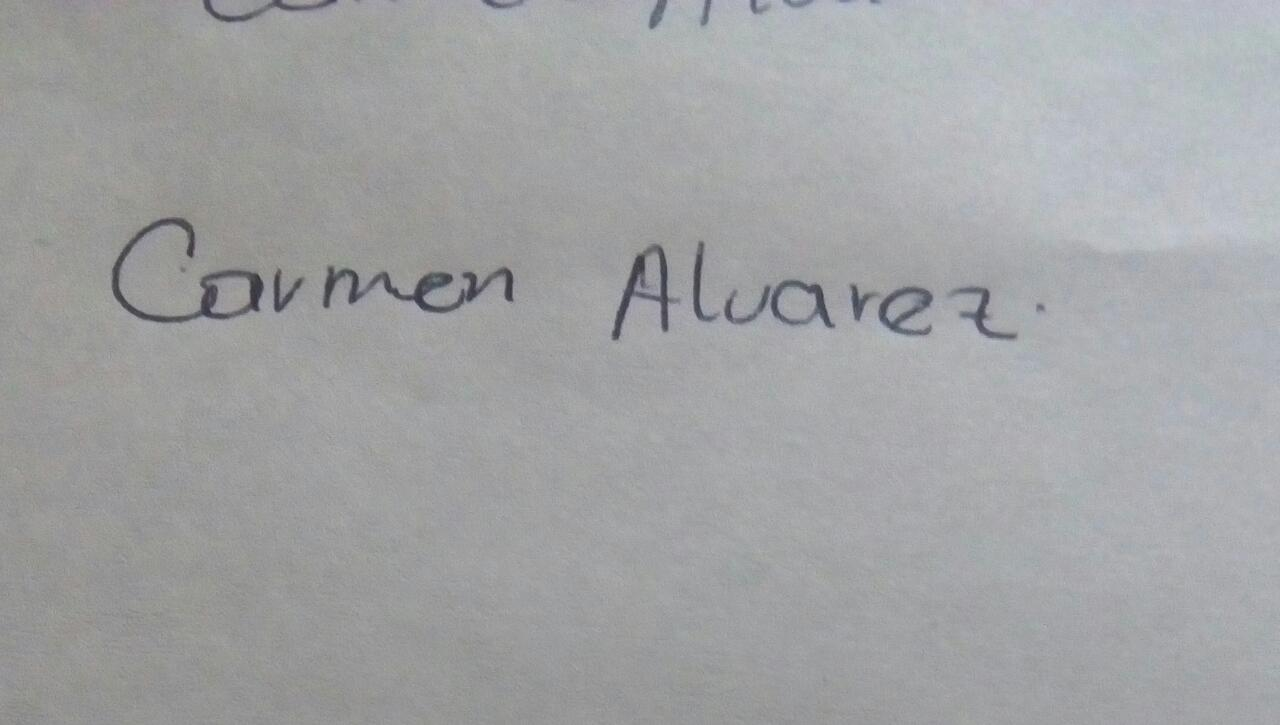 Carmen Alvarez.